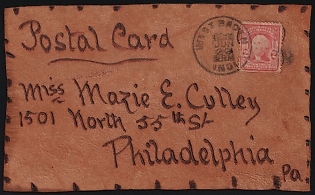 Postal Card
Miss Mazie E. Culley
1501 North 55th St
Philadelphia
Pa.